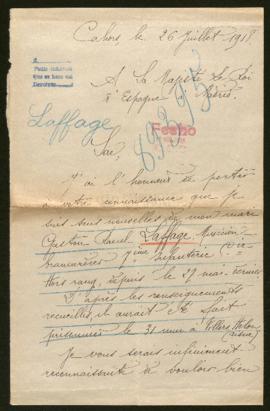 Cahors, le 26 Juillet 1918
A Sa Majesté Le Roi
d'Espagne à Madrid
Fecho
Laffage
Sire,
J'ai l'honneur de porter
à votre connaissance que je
suis sans nouvelles de mon mari
Gaston Paul Laffage Musicien
brancardier 7ème Infanterie Cie
Hors rang, depuis le 27 mai dernier
D'après les renseignements
recueillis, il aurait été fait
prisonnier le 31 mai à Villers Hélon
(Aisne)
Je vous serais infiniment
reconnaissante de vouloir bien